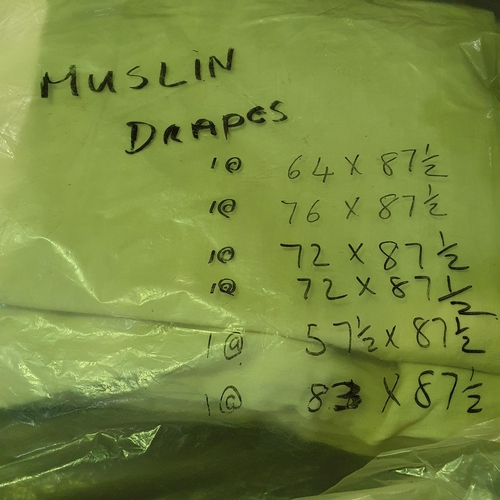 MUSLIN
DRAPES
1@ 64 X 87½
1@ 76 X 87½
1@ 72 X 87½
1@ 72 X 87½
1@ 57½ X 87½
1@ X 87½